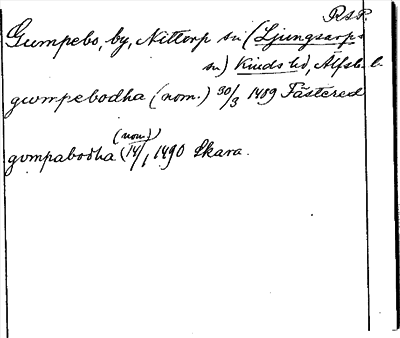 RAP.
Gumpebo, by, Nittorp sn (Ljungsarps
sn) Kinds hd, Älfsb. l.
gwmpebodha (nom.) 30/3 1489 Fästered
(nom.)
gvmpabodha (14/1 1490 Skara.